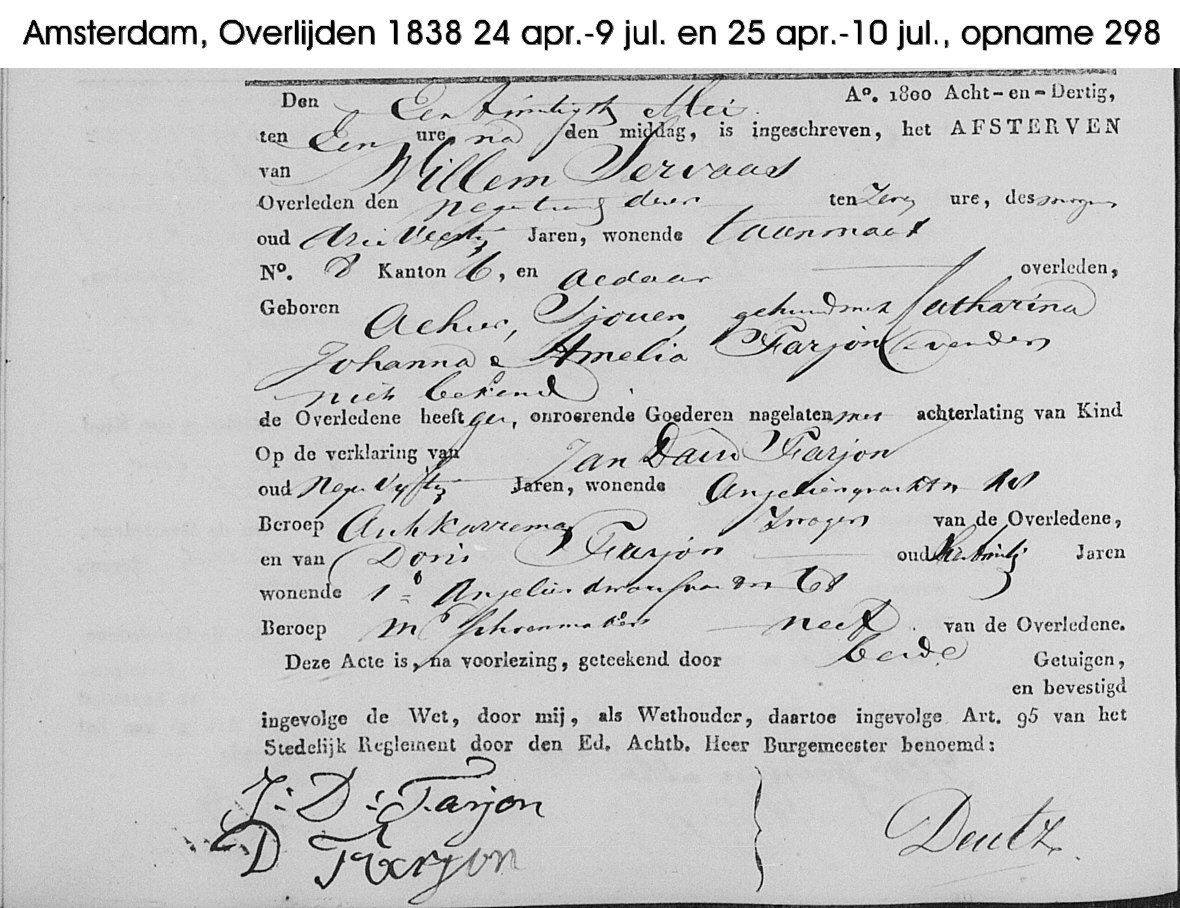 Amsterdam, Overlijden 1838 24 apr.-9 jul. en 25 apr.-10 jul., opname 298
Den Een Twintigste Mei Aº. 1800 Acht-en-Dertig,
ten Een ure na den middag, is ingeschreven, het AFSTERVEN
van Willem Servaas
Overleden den negentiend dezer ten Zeven ure, des morgens
oud drie Veertig Jaren, wonende Laanmaat
Nº. 8 Kanton 6, en aldaar overleden,
Geboren gehuwd met Catharina
Johanna Amelia Farjon ouders
niet bekend
de Overledene heeft geen, onroerende Goederen nagelaten met achterlating van Kind
Op de verklaring van Jan David Farjon
oud Negen Vijftig Jaren, wonende Angeliersgracht
Beroep Zwager van de Overledene,
en van Doris Farjon oud Jaren
wonende 1e Angeliers dwarsstraat 68
Beroep Mr Schoenmaker neef van de Overledene.
Deze Acte is, na voorlezing, geteekend door beide Getuigen,
en bevestigd
ingevolge de Wet, door mij, als Wethouder, daartoe ingevolge Art. 95 van het
Stedelijk Reglement door den Ed. Achtb. Heer Burgemeester benoemd:
J: D: Farjon
D Farjon
Deutz.